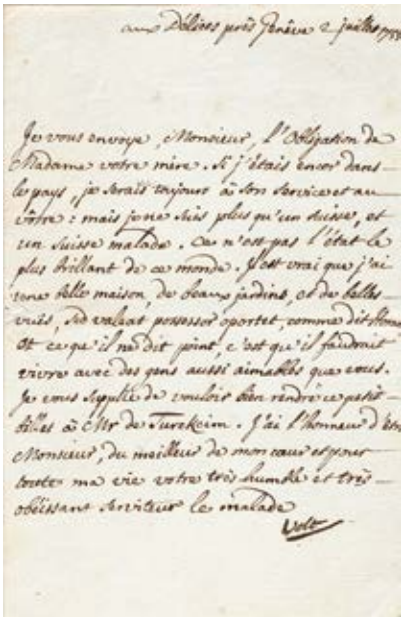 aux Délices près Genêve 2 juillet 1755
Je vous envoye, Monsieur, l'Obligation de
Madame votre mére. Si j'étais encor dans
le pays, je serais toujours à son service et au
vôtre: mais je ne suis plus qu'un suisse, et
un suisse malade. Ce n'est pas l'état le
plus brillant de ce monde. Il est vrai que j'ai
une belle maison, de beaux jardins, et de belles
vuës, sed valeat possessor oportet, comme dit
Et ce qu'il ne dit point, c'est qu'il faudrait
vivre avec des gens aussi aimables que vous.
Je vous suplie de vouloir bien rendre ce petit
billet à Mr de Turckeim. J'ai l'honneur d'être
Monsieur, du meilleur de mon cœur et pour
toute ma vie votre très humble et très
obéissant serviteur le malade
Volt